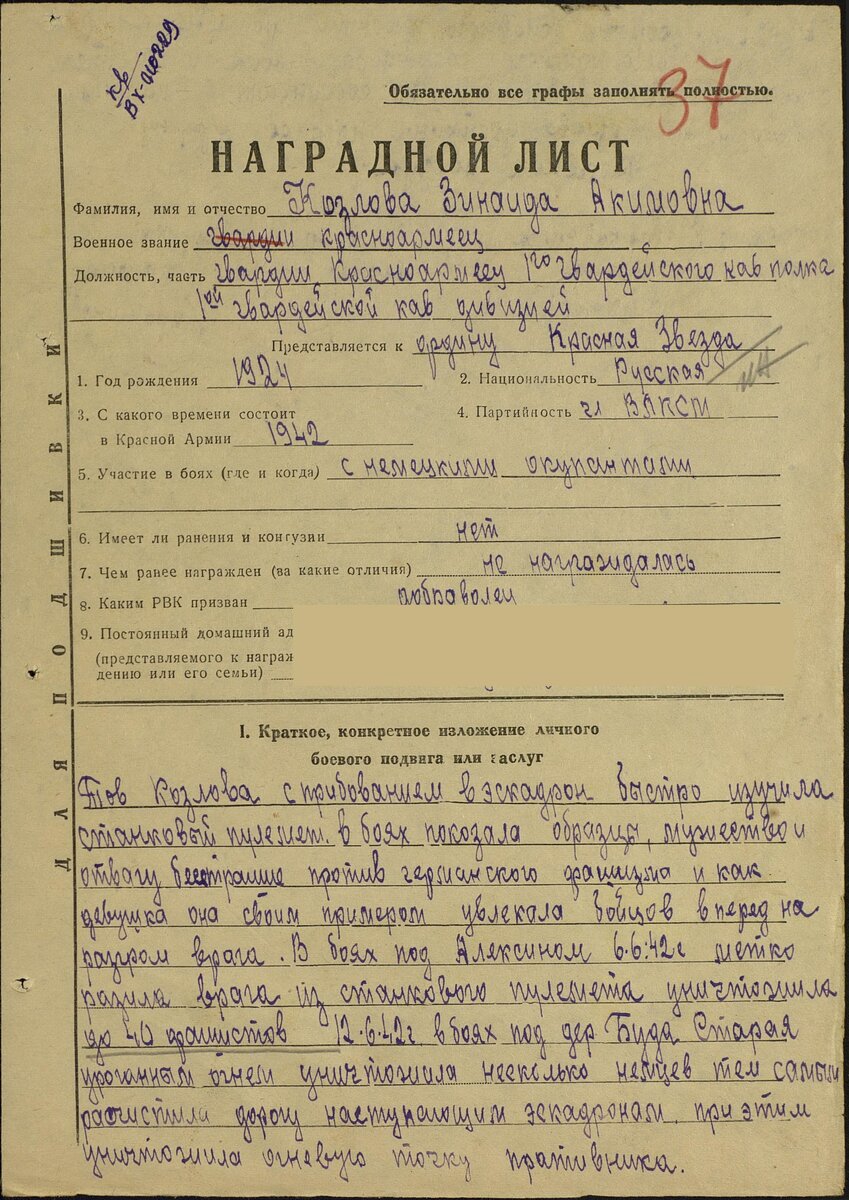 КВ
ВХ-010229
37
Обязательно все графы заполнять полностью.
НАГРАДНОЙ ЛИСТ
Фамилия, имя и отчество Козлова Зинаида Акимовна
Военное звание гвардии красноармеец
Должность, часть гвардии Красноармеец 1го гвардейского кав полка
1ой гвардейской кав дивизией
Представляется к ордину Красная Звезда
1. Год рождения 1924 2. Национальность Русская
3. С какого времени состоит
в Красной Армии 1942
4. Партийность чл ВЛКСМ
5. Участие в боях (где и когда) с немецкими окупантами
6. Имеет ли ранения и контузии нет
7. Чем ранее награжден (за какие отличия) не награзидалась
8. Каким РВК призван добраволец
9. Постоянный домашний ад
(представляемого к награж
дению или его семьи)
ДЛЯ ПОДШИВКИ
I. Краткое, конкретное изложение личного
боевого подвига или заслуг
Тов Козлова с прибованием в эскадрон быстро изучила
станковый пулемет. в боях покозала образцы, мужество и
отвагу бестраше против германского фашизма и как
девушка она своим примером увлекала бойцов в перед на
разгром врага. В боях под Алексином 6.6.42г метко
разила врага из станкового пулемета уничтозиила
до 40 фашистов 12.6.42г. в боях под дер Буда Старая
ураганным огнем уничтозиила несколько немцев тем самым
расчистила дорогу наступающим эскадронам, при этим
уничтозиила огневую точку пративника.